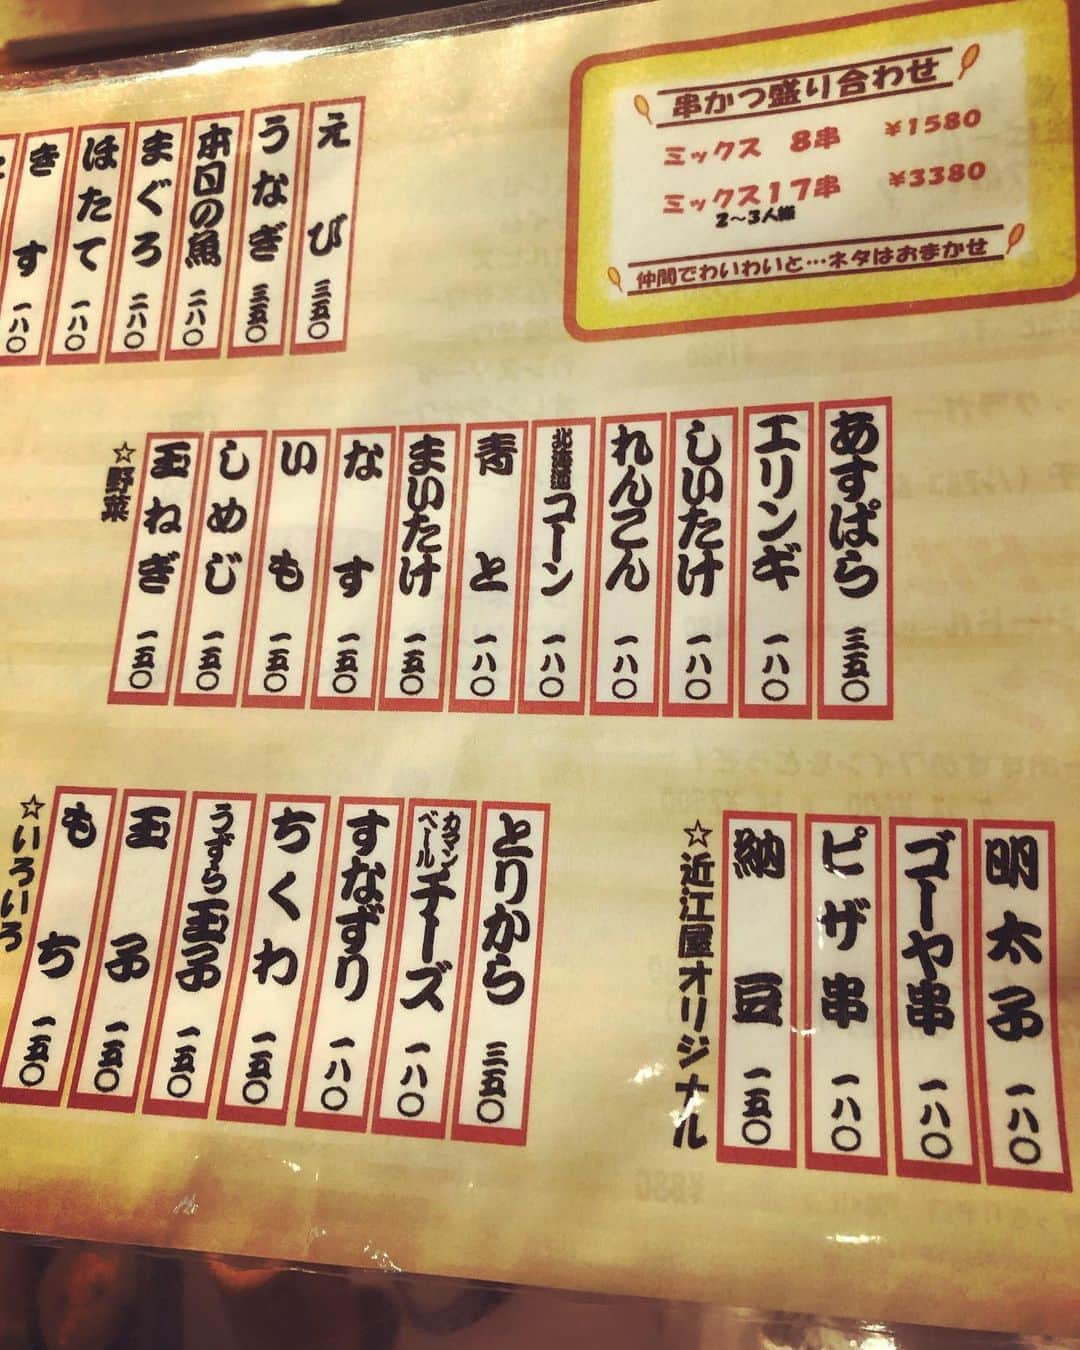 串かつ盛り合わせ
ミックス 8串 ¥1580
ミックス17串 ¥3380
2〜3人様
仲間でわいわいと…ネタはおまかせ
えび 三五〇
うなぎ 三五〇
本日の魚 二八〇
まぐろ 二八〇
ほたて 一八〇
きす 一八〇
☆野菜
あすぱら 三五〇
エリンギ 一八〇
しいたけ 一八〇
れんこん 一八〇
北海道コーン 一八〇
青と 一八〇
まいたけ 一五〇
なす 一五〇
いも 一五〇
しめじ 一五〇
玉ねぎ 一五〇
☆近江屋オリジナル
明太子 一八〇
ゴーヤ串 一八〇
ピザ串 一八〇
納豆 一五〇
☆いろいろ
とりから 三五〇
カマンベールチーズ 一八〇
すなずり 一八〇
ちくわ 一五〇
うずら玉子 一五〇
玉子 一五〇
もち 一五〇